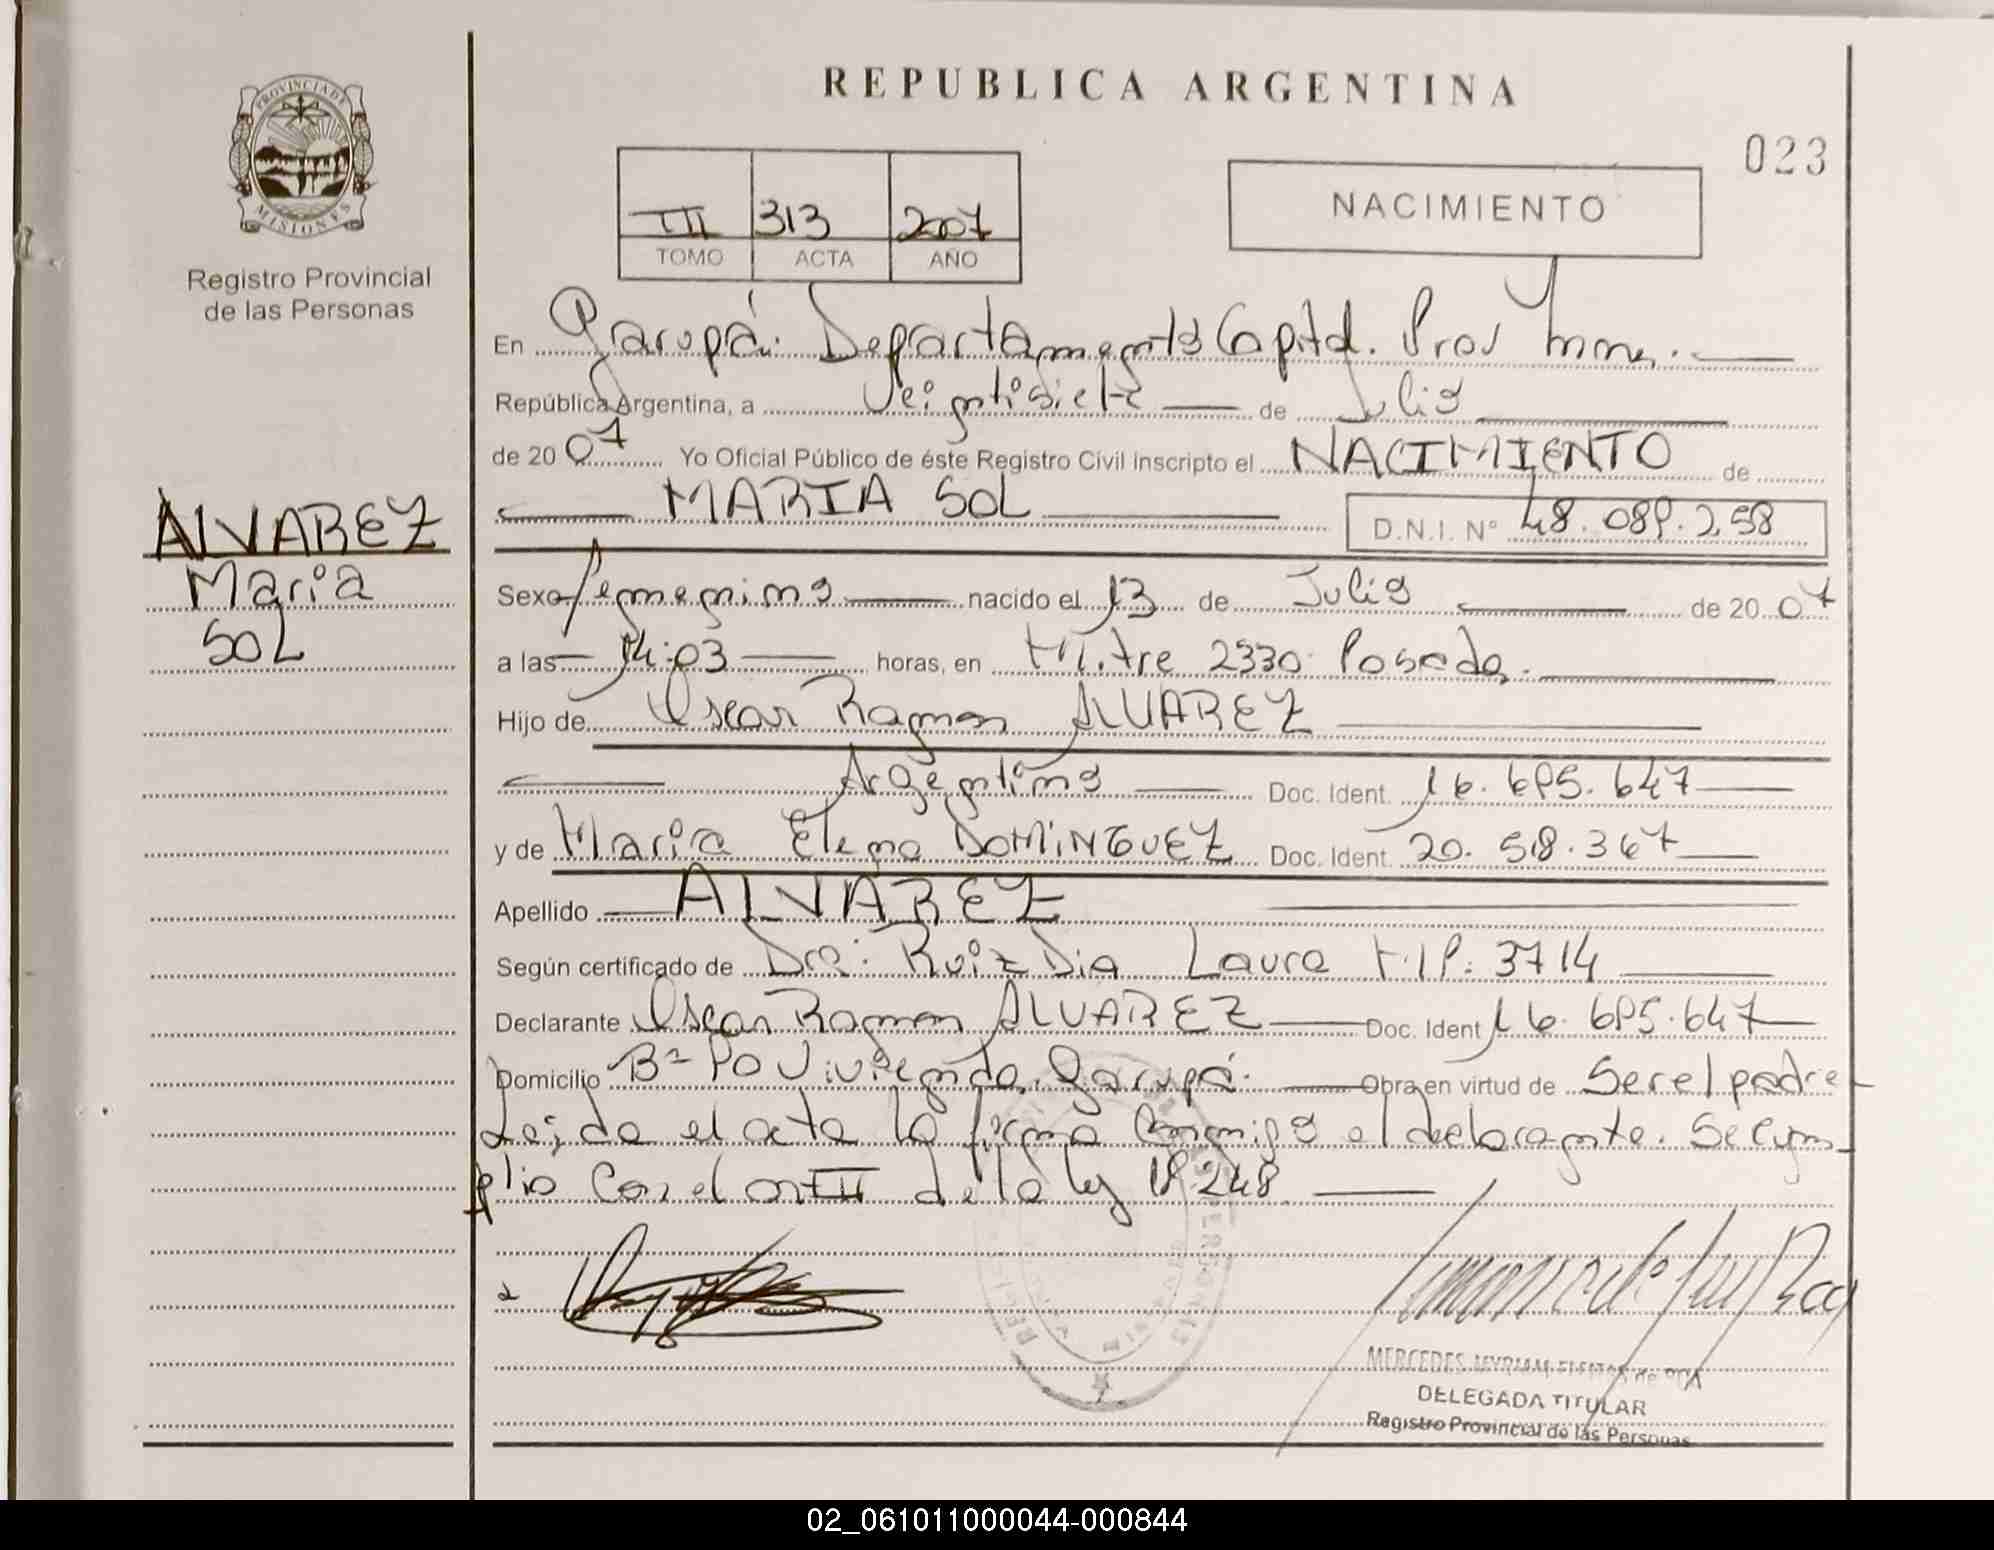 REPUBLICA ARGENTINA
023
PROVINCIA DE
MISIONES
Registro Provincial
de las Personas
III 313 2007
TOMO ACTA AÑO
NACIMIENTO
En Garupá. Departamento Capital. Prov
República Argentina, a Veintisiete de Julio
de 2007 Yo Oficial Público de éste Registro Civil inscripto el NACIMIENTO de
MARIA SOL D.N.I. Nº 48.089.258
ALVAREZ
Maria
SOL
Sexo femenino nacido el 13 de Julio de 2007
a las 14:03 horas, en Mitre 2330 Posadas.
Hijo de Oscar Ramon ALVAREZ
Argentino Doc. Ident. 16.695.647
y de Maria Elena DOMINGUEZ Doc. Ident. 20.518.367
Apellido ALVAREZ
Según certificado de Dra: Ruiz Dia Laura M.P: 3714
Declarante Oscar Ramon ALVAREZ Doc. Ident 16.695.647
Domicilio Bº 90 Vivienda. Garupá. Obra en virtud de Ser el padre
Leida el acta la firma conmigo el declarante. Se cum
plio con el art II de la ley 18.248
MERCEDES MYRIAM de
DELEGADA TITULAR
Registro Provincial de las Personas
02_061011000044-000844